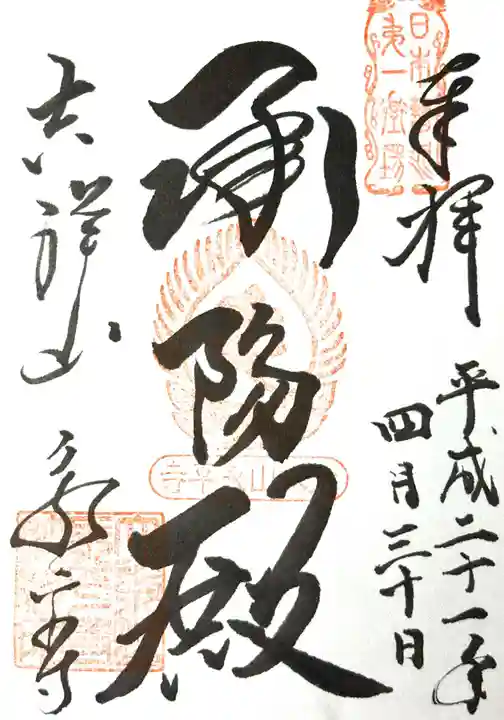 奉拝
平成二十一年
四月三十日
承陽殿
吉祥山
永平寺
日本曹洞
第一道場
山永平寺